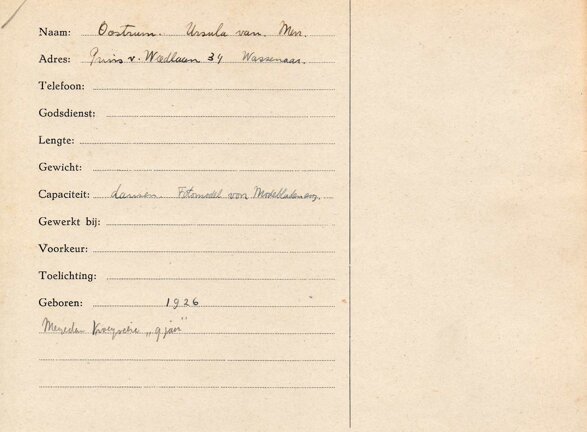 Naam: Oostrum. Ursula van. Mev.
Adres: Prins v. Wiedlaan 34 Wassenaar.
Telefoon:
Godsdienst:
Lengte:
Gewicht:
Capaciteit: dansen. Fotomodel voor Modebladen enz.
Gewerkt bij:
Voorkeur:
Toelichting:
Geboren: 1926
"9 jaar"